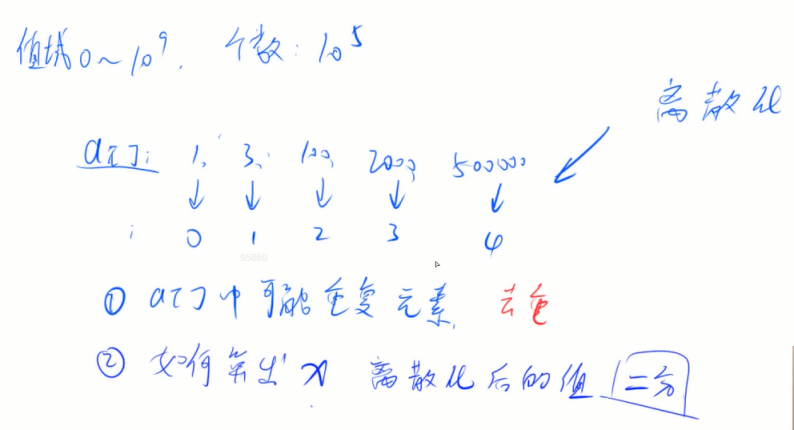 值域 0~10⁹, 个数: 10⁵
离散化
a[]: 1, 3, 100, 2000, 500000
↓ ↓ ↓ ↓ ↓
i 0 1 2 3 4
95860
① a[]中可能重复元素 去重
② 如何算出 x 离散化后的值 二分